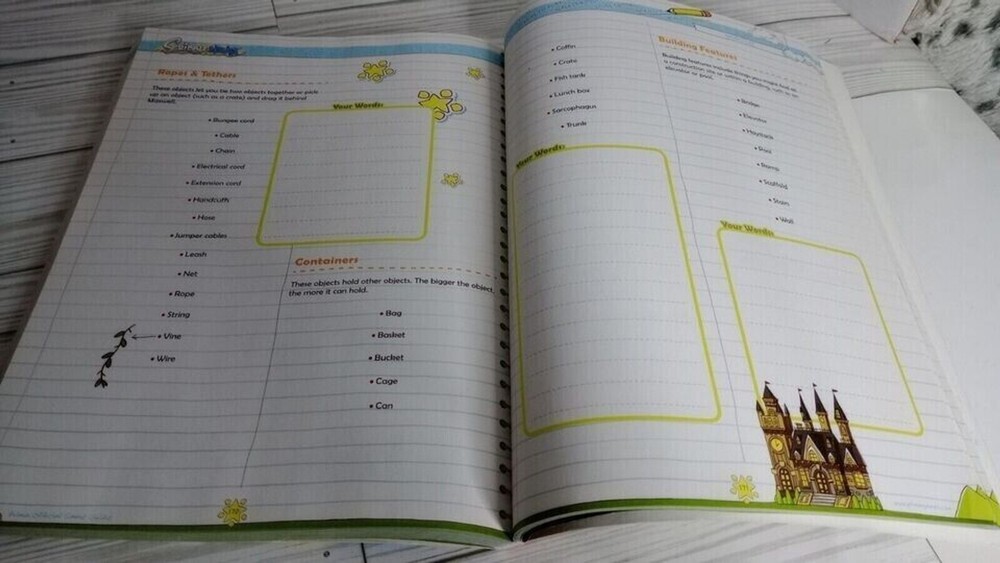 Ropes & Tethers
These objects let you tie two objects together or pick
up an object (such as a crate) and drag it behind
Maxwell.
• Bungee cord
• Cable
• Chain
• Electrical cord
• Extension cord
• Handcuffs
• Hose
• Jumper cables
• Leash
• Net
• Rope
• String
• Vine
• Wire
Your Words:
Containers
These objects hold other objects. The bigger the object,
the more it can hold.
• Bag
• Basket
• Bucket
• Cage
• Can
• Coffin
• Crate
• Fish tank
• Lunch box
• Sarcophagus
• Trunk
Your Words:
Building Features
Building features include things you might find at
a construction site or within a building, such as an
elevator or pool.
• Bridge
• Elevator
• Haystack
• Pool
• Ramp
• Scaffold
• Stairs
• Wall
Your Words:
171